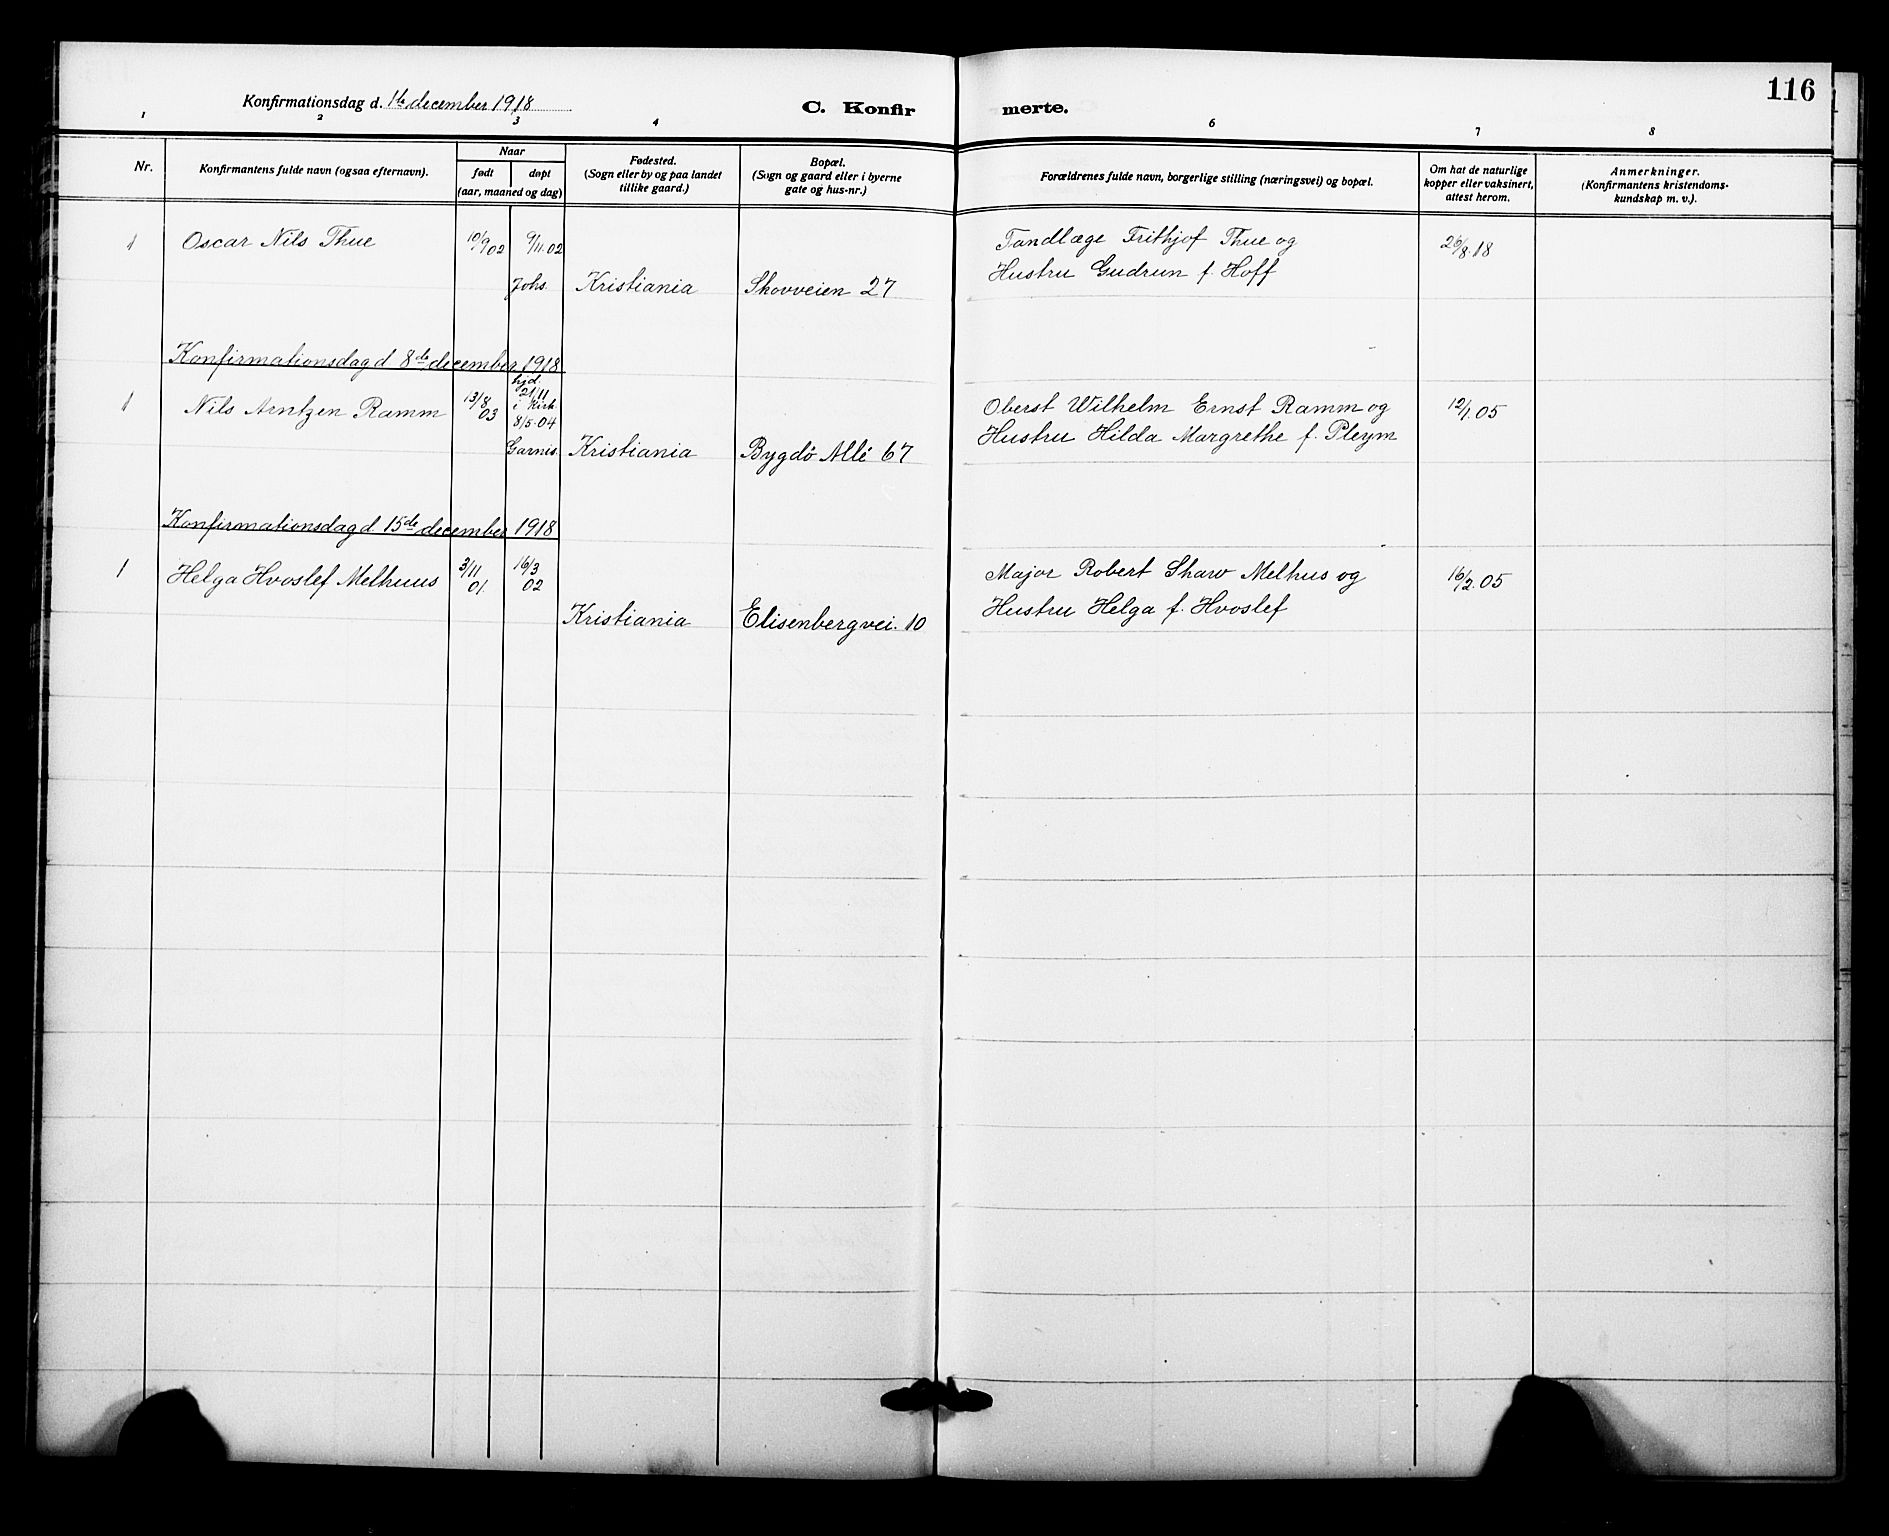 116
Konfirmationsdag d. 1ste december 1918
C. Konfirmerte.
1 2 3 4 6 7 8
Nr.
Konfirmantens fulde navn (ogsaa efternavn).
Naar
født døpt
(aar, maaned og dag)
Fødested.
(Sogn eller by og paa landet
tillike gaard.)
Bopæl.
(Sogn og gaard eller i byerne
gate og hus-nr.)
Forældrenes fulde navn, borgerlige stilling (næringsvei) og bopæl.
Om hat de naturlige
kopper eller vaksinert,
attest herom.
Anmerkninger.
(Konfirmantens kristendoms-
kundskap m. v.).
1 Oscar Nils Thue 10/9 02 9/11.02 Tandlæge Frithjof Thue og 26/8.18
Johs. Kristiania Skovveien 27 Hustru Gudrun f. Hoff
Konfirmationsdag d 8de december 1918
1 Nils Arntzen Ramm 13/8 03 hjd. 21/11 i Kirk. 8/5.04 Oberst Wilhelm Ernst Ramm og 12/1.05
Garnis. Kristiania Bygdö Allé 67 Hustru Hilda Margrethe f. Pleym
Konfirmationsdag d. 15de december 1918
1 Helga Hvoslef Melhuus 3/11 01. 16/3 02 Major Robert Shaw Melhus og 16/2.05
Kristiania Elisenbergvei. 10 Hustru Helga f. Hvoslef